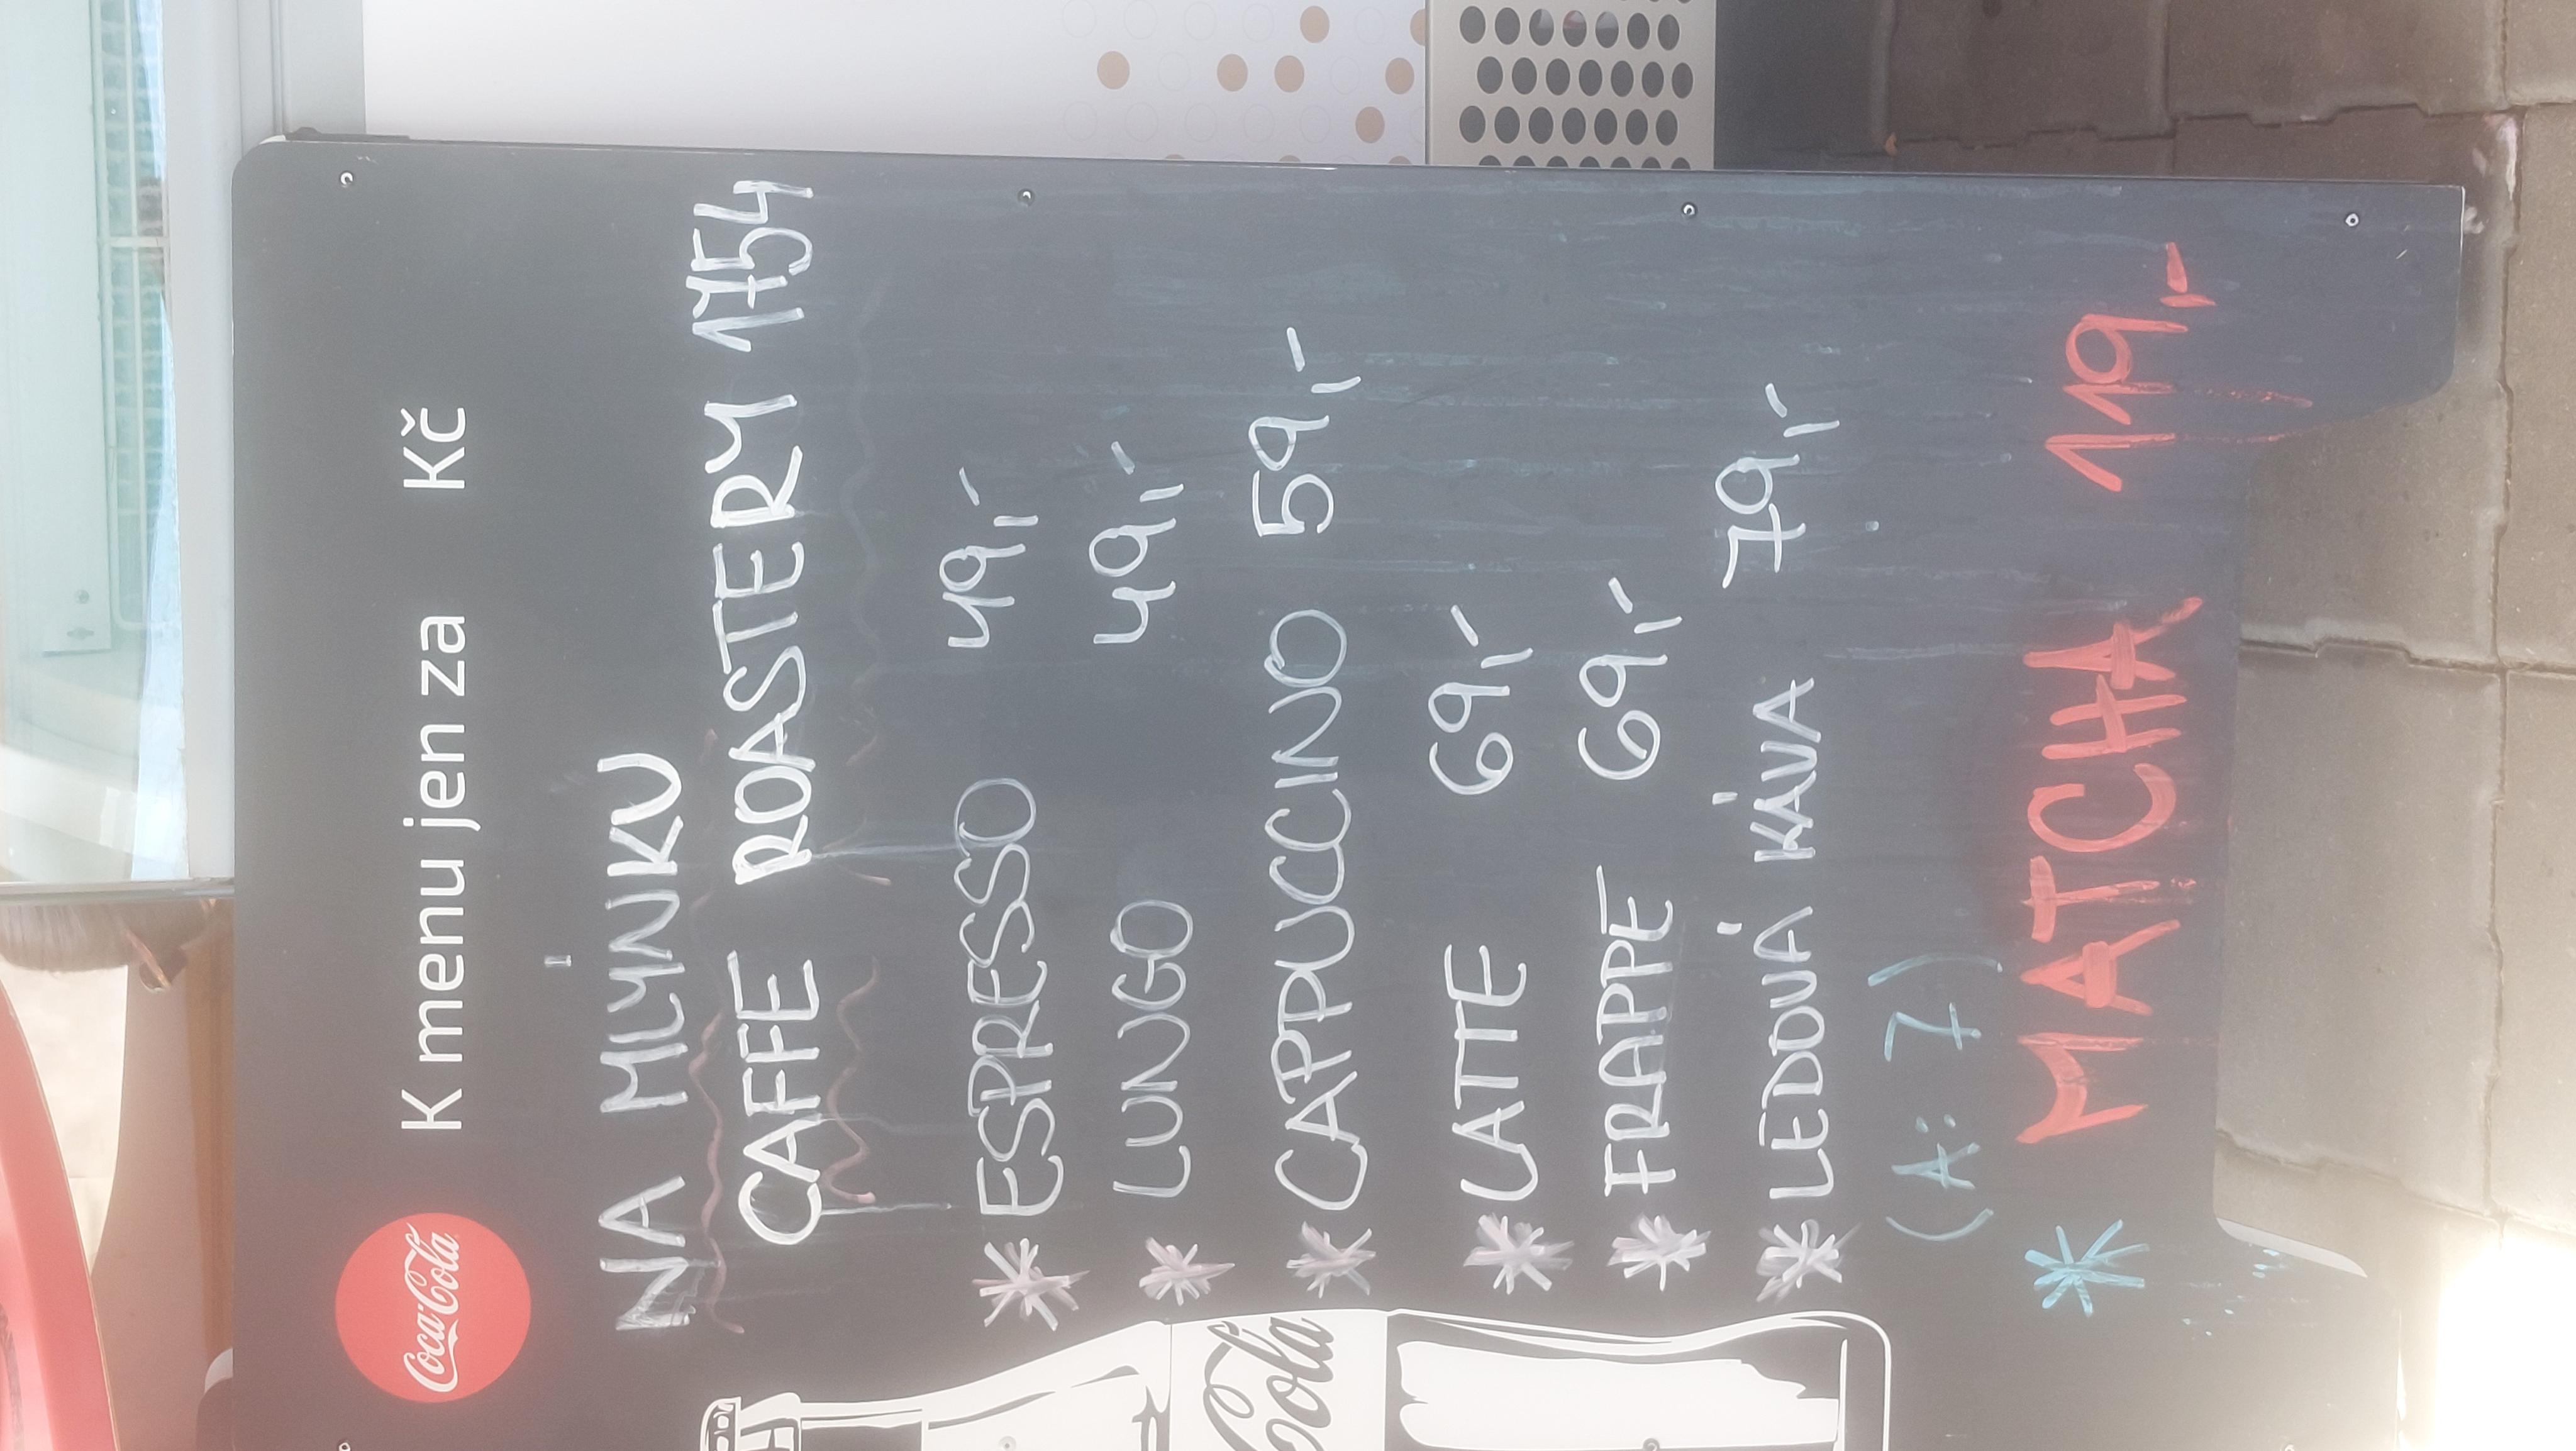 Coca-Cola
K menu jen za Kč
NA MLÝNKU
CAFFE ROASTERY 1754
* ESPRESSO 49,-
* LUNGO 49,-
* CAPPUCCINO 59,-
* LATTE 69,-
* FRAPPE 69,-
* LEDOVÁ KÁVA 79,-
(A: 7)
* MATCHA 119,-
Cola